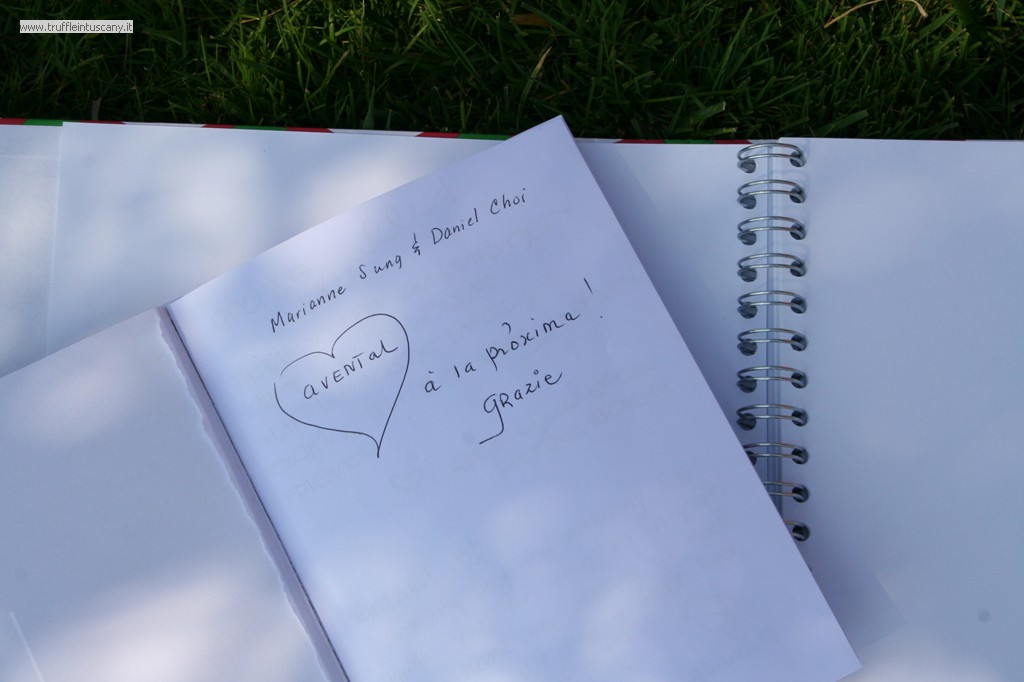 www.truffleintuscany.it
Marianne Sung & Daniel Choi
aVENTal
à la próxima!
GRazie